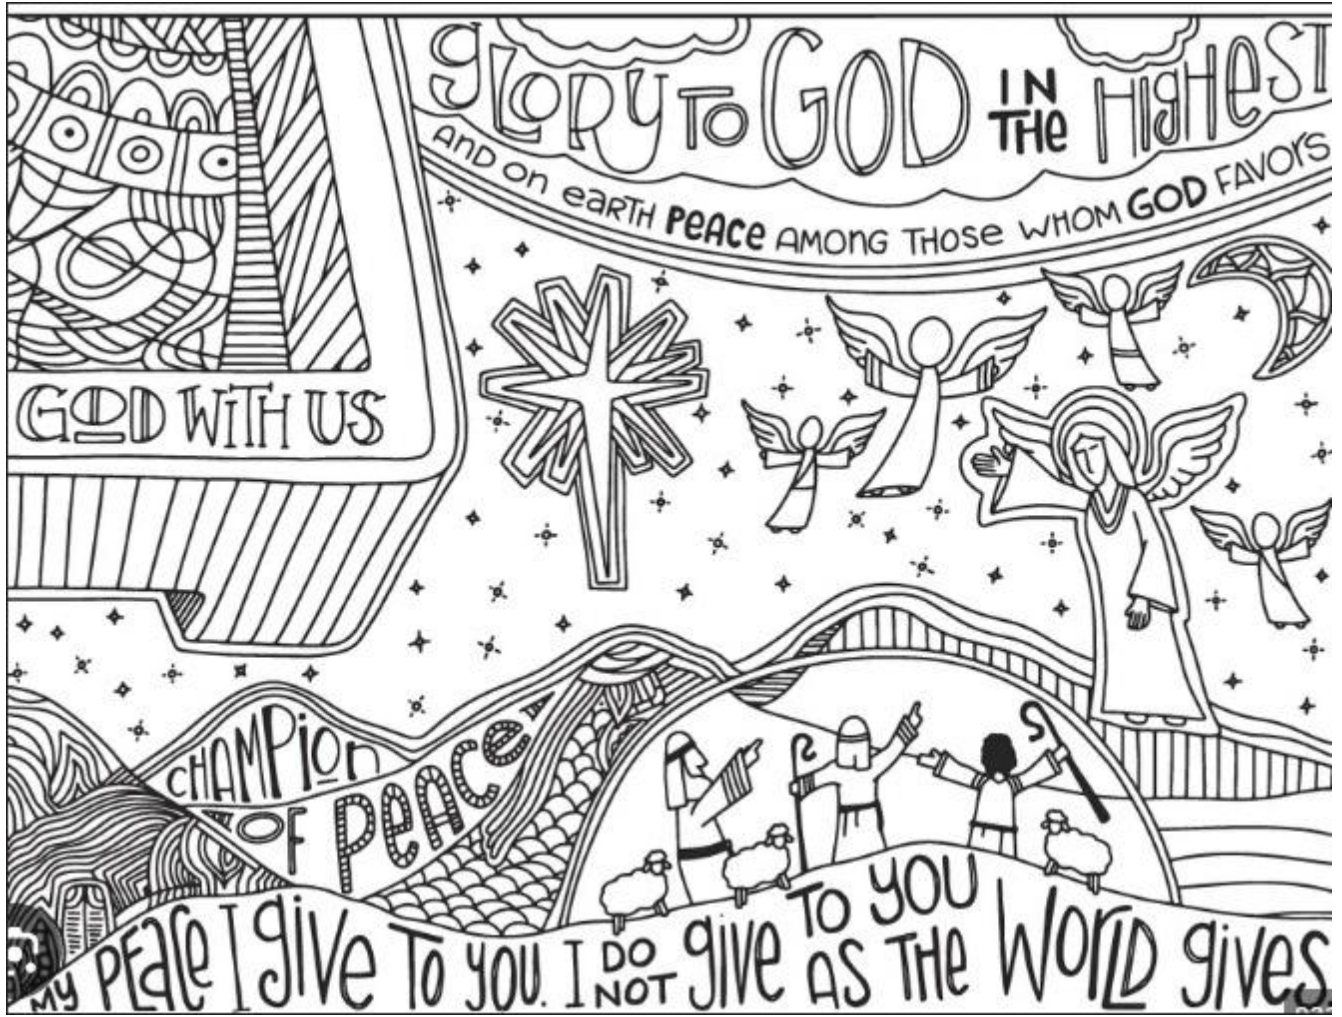 GLORY TO GOD IN THE HIGHEST
AND ON EARTH PEACE AMONG THOSE WHOM GOD FAVORS
GOD WITH US
CHAMPION
OF PEACE
MY PEACE I GIVE TO YOU. I DO NOT GIVE TO YOU AS THE WORLD GIVES.